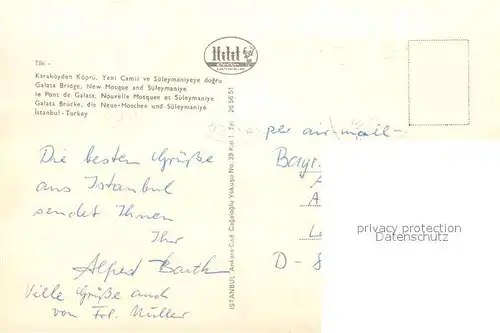 Hitit
Tib! -
Karaköyden Köprü, Yeni Camii ve Süleymaniyeye doğru
Galata Bridge, New Mosque and Süleymaniye
le Pont de Galata, Nouvelle Mosquee et Süleymaniye
Galata Brücke, die Neue-Moschen und Süleymaniye
İstanbul - Turkey
Die besten Grüße
aus Istanbul
sendet Ihnen
Ihr
Alfred Barth
Viele Grüße auch
von Frl. Müller
İSTANBUL Ankara Cad. Cağaloğlu Yokuşu No. 39 Kat 1 Tel 26 56 51
per air mail -
Bayr.
A
A
L
D - 8
privacy protection
Datenschutz